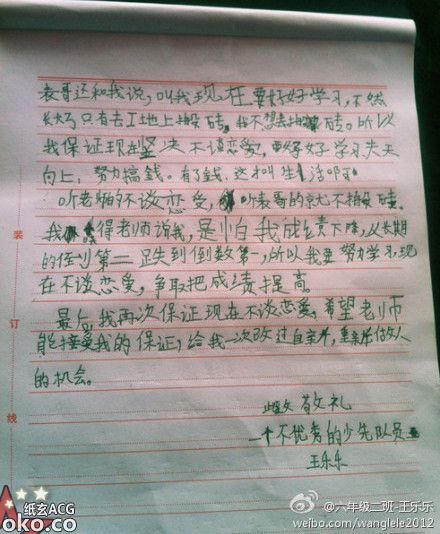 表哥还和我说，叫我现在要好好学习，不然
长大了只有去工地上搬砖，我不想去搬砖。所以
我保证现在坚决不谈恋爱，要好好学习天天
向上，努力搞钱。有了钱，这才叫生活
听老师的不谈恋爱，听表哥的就不搬砖。
我觉得老师说我，是怕我成绩下降，从长期
的倒数第二跌到倒数第一，所以我要努力学习，现
在不谈恋爱，争取把成绩提高。
最后，我再次保证现在不谈恋爱，希望老师
能接受我的保证，给我一次改过自新，重新做人
的机会。
此致 敬礼
一个不优秀的少先队员
王乐乐
装
订
线
纸玄ACG
oko.co
@六年级二班-王乐乐
weibo.com/wanglele2012